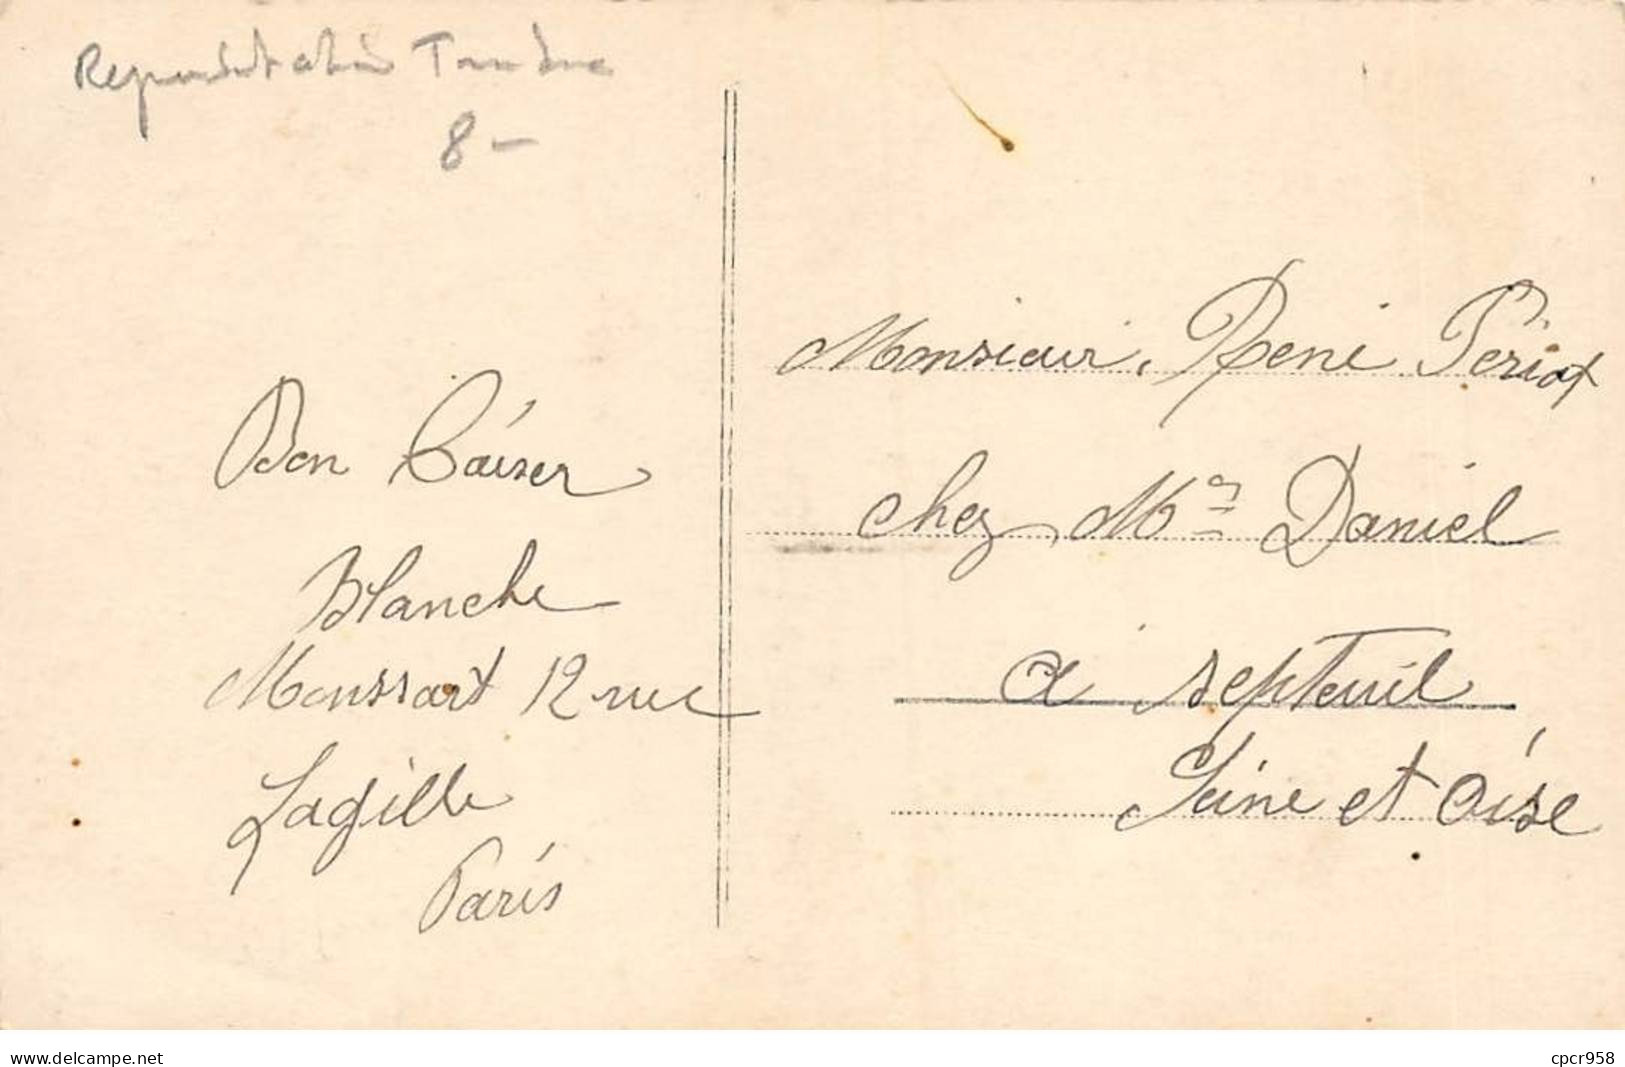 Représentation Timbre
8 -
Bon Baiser
Blanche
Moussart 12 rue
Lagille
Paris
Monsieur, René Périot
chez Mme Daniel
a septeuil
Seine et Oise
www.delcampe.net
cpcr958